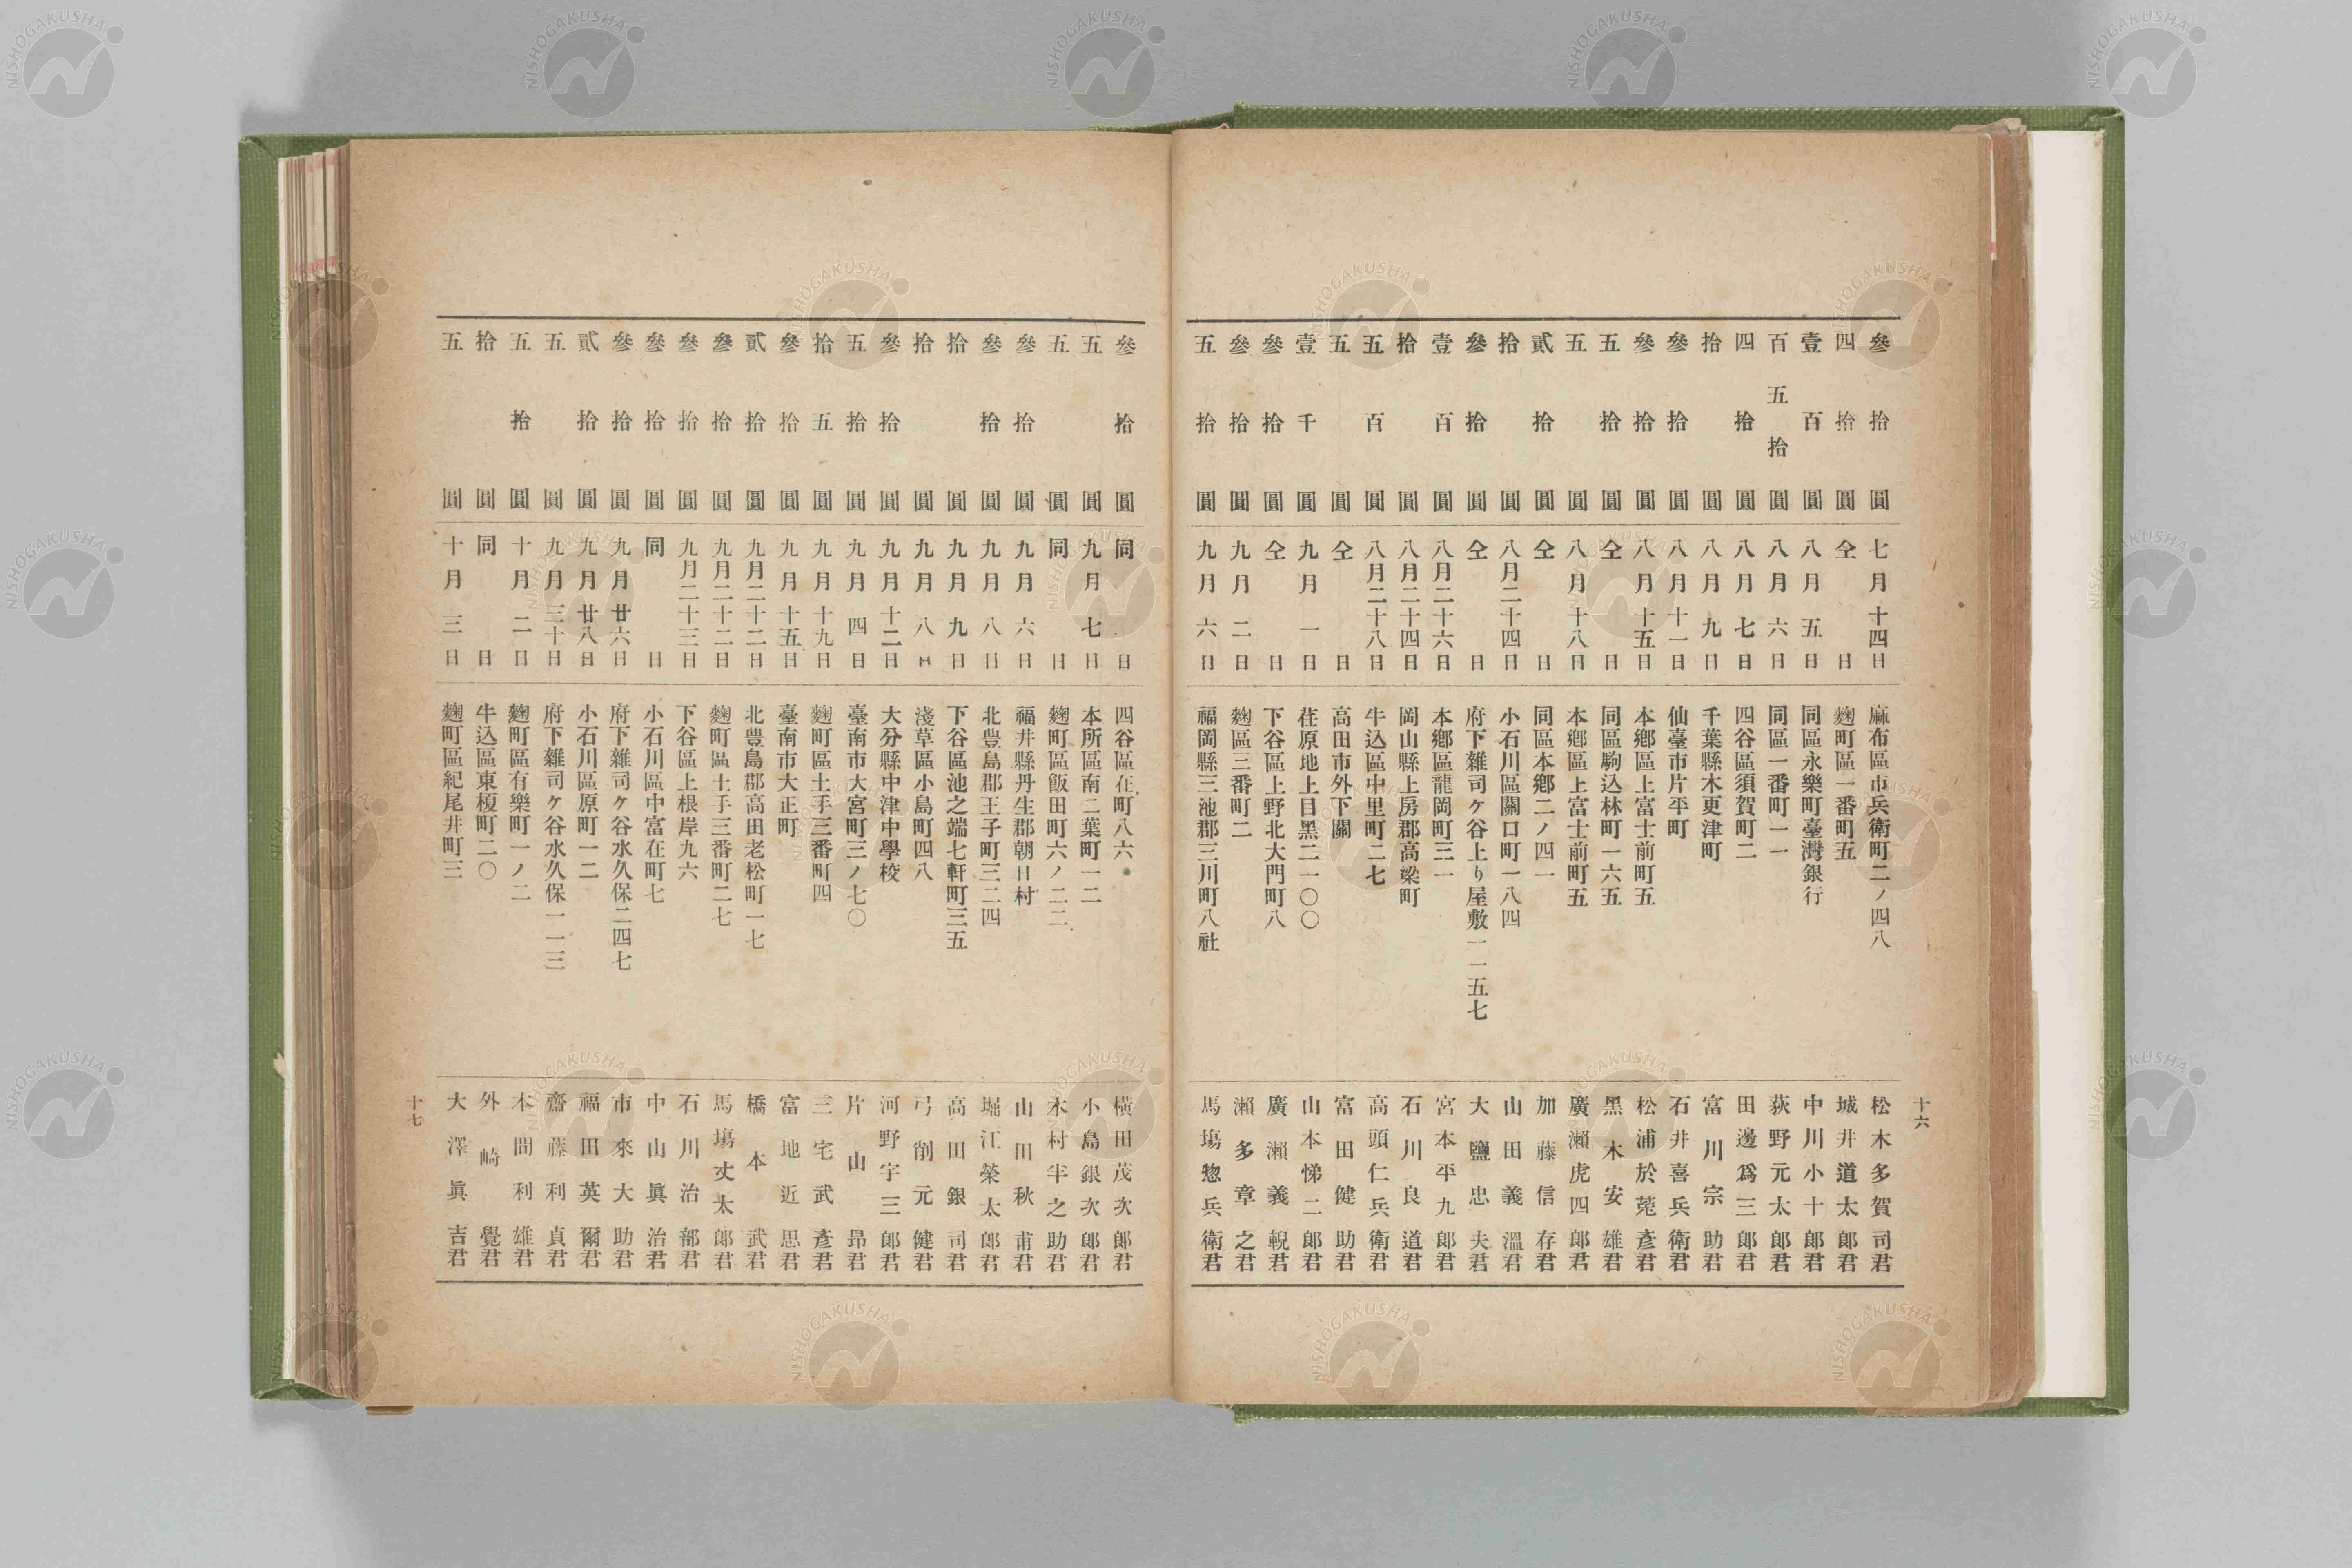 十六
參拾圓 七月十四日 麻布區市兵衛町二ノ四八 松木多賀司君
四拾圓 仝日 麴町區一番町五 城井道太郎君
壹百圓 八月五日 同區永樂町臺灣銀行 中川小十郎君
百五拾圓 八月六日 同區一番町一一 荻野元太郎君
四拾圓 八月七日 四谷區須賀町二 田邊爲三郎君
拾圓 八月九日 千葉縣木更津町 富川宗助君
參拾圓 八月十一日 仙臺市片平町 石井喜兵衛君
參拾圓 八月十五日 本鄕區上富士前町五 松浦於菟彥君
五拾圓 仝日 同區駒込林町一六五 黑木安雄君
五圓 八月十八日 本鄕區上富士前町五 廣瀨虎四郎君
貳拾圓 仝日 同區本鄕二ノ四一 加藤信存君
拾圓 八月二十四日 小石川區關口町一八四 山田義溫君
參拾圓 仝日 府下雜司ケ谷上り屋敷一一五七 大鹽忠夫君
壹百圓 八月二十六日 本鄕區龍岡町三一 宮本平九郎君
拾圓 八月二十四日 岡山縣上房郡高梁町 石川良道君
五百圓 八月二十八日 牛込區中里町二七 高頭仁兵衛君
五圓 仝日 高田市外下關 富田健助君
壹千圓 九月一日 荏原地上目黑二一〇〇 山本悌二郎君
參拾圓 仝日 下谷區上野北大門町八 廣瀨義輗君
參拾圓 九月二日 麴區三番町二 瀨多章之君
五拾圓 九月六日 福岡縣三池郡三川町八社 馬塲惣兵衛君
參拾圓 同日 四谷區在町八六 橫田茂次郎君
五圓 九月七日 本所區南二葉町一二 小島銀次郎君
五圓 同日 麴町區飯田町六ノ二二 木村半之助君
參拾圓 九月六日 福井縣丹生郡朝日村 山田秋甫君
參拾圓 九月八日 北豊島郡王子町三二四 堀江榮太郎君
拾圓 九月九日 下谷區池之端七軒町三五 高田銀司君
拾圓 九月八日 淺草區小島町四八 弓削元健君
參拾圓 九月十二日 大分縣中津中學校 河野宇三郎君
五拾圓 九月四日 臺南市大宮町三ノ七〇 片山昻君
拾五圓 九月十九日 麴町區土手三番町四 三宅武彥君
參拾圓 九月十五日 臺南市大正町 富地近思君
貳拾圓 九月二十二日 北豊島郡高田老松町一七 橋本武君
參拾圓 九月二十二日 麴町區土手三番町二七 馬塲丈太郎君
參拾圓 九月二十三日 下谷區上根岸九六 石川治部君
參拾圓 同日 小石川區中富在町七 中山眞治君
參拾圓 九月廿六日 府下雜司ケ谷水久保二四七 市來大助君
貳拾圓 九月廿八日 小石川區原町一二 福田英爾君
五圓 九月三十日 府下雜司ケ谷水久保一一三 齋藤利貞君
五拾圓 十月二日 麴町區有樂町一ノ二 本間利雄君
拾圓 同日 牛込區東榎町二〇 外崎覺君
五圓 十月三日 麴町區紀尾井町三 大澤眞吉君
十七